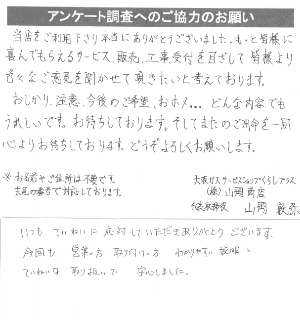 アンケート調査へのご協力のお願い
当店をご利用下さり本当にありがとうございました。もっと皆様に
喜んでもらえるサービス、販売、工事受付を目ざして皆様より
色々なご意見を聞かせて頂きたいと考えております。
おしかり、注意、今後のご希望、おホメ... どんな内容でも
うれしいです。お待ちしております。そしてまたのご用命を一同
心よりお待ちしております。どうぞよろしくお願いします。
※お名前やご住所は不要です。
大阪ガスサービスショップくらしプラス
(株)山岡商店
代表取締役 山岡
いつも ていねいに 応対していただきありがとうございます。
今回も 営業の方 取り付けの方 わかりやすい 説明
ていねいな 取り扱いで 安心しました。